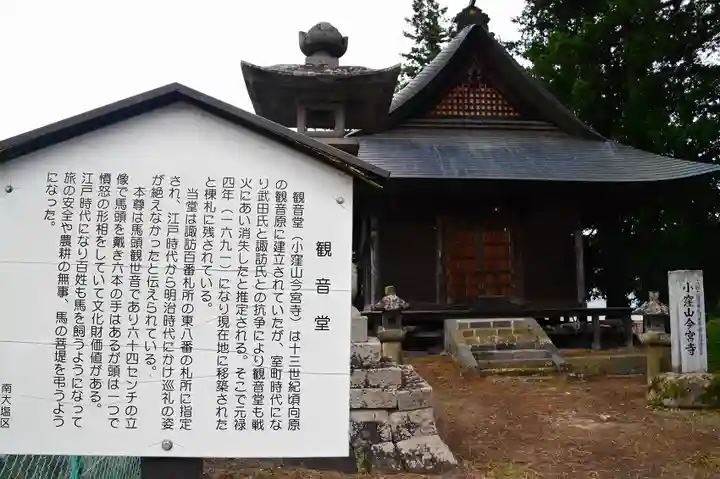 観音堂
観音堂（小窪山今宮寺）は十三世紀頃向原
の観音原に建立されていたが、室町時代にな
り武田氏と諏訪氏との抗争により観音堂も戦
火にあい消失したと推定される。そこで元禄
四年（一六九一）になり現在地に移築された
と棟札に残されている。
当堂は諏訪百番札所の東八番の札所に指定
され、江戸時代から明治時代にかけ巡礼の姿
が絶えなかったと伝えられている。
本尊は馬頭観世音であり六十四センチの立
像で馬頭を戴き六本の手はあるが頭は一つで
憤怒の形相をしていて文化財価値がある。
江戸時代になり百姓も馬を飼うようになって
旅の安全や農耕の無事、馬の菩提を弔うよう
になった。
南大塩区
小窪山今宮寺